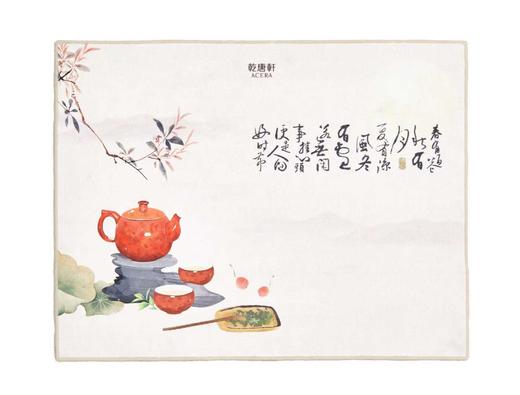 乾唐軒
ACERA
春有百花
秋有
月
夏有涼
風冬
有雪
若無閒
事挂心頭
便是人間
好時節